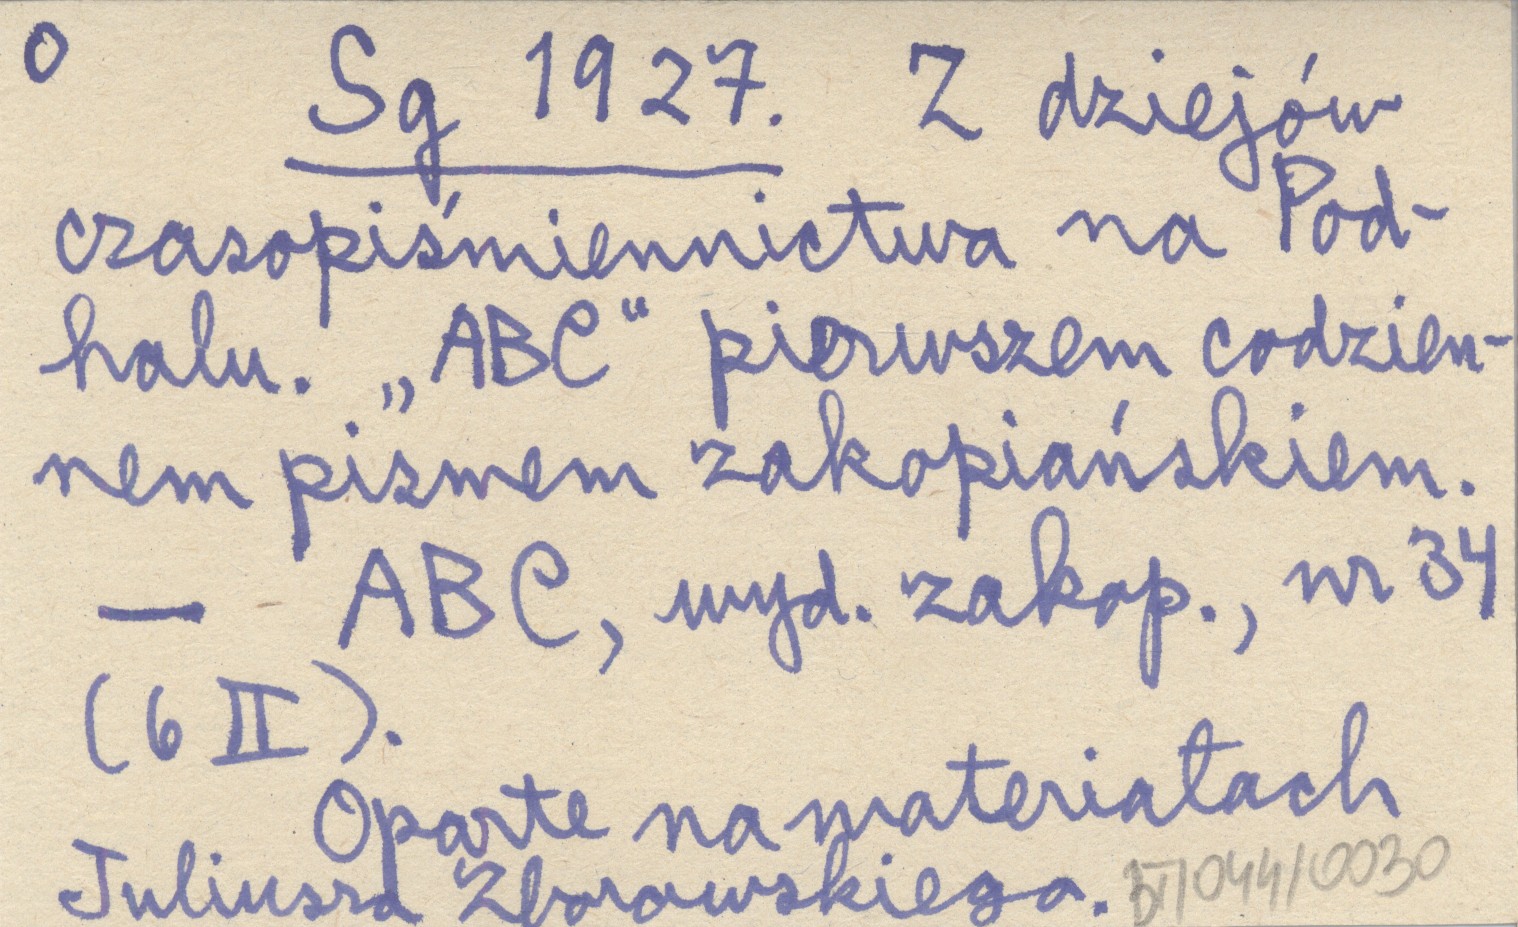 0 Sg 1927. Z dziejów
czasopiśmiennictwa na Pod-
halu. „ABC" pierwszem codzien-
nem pismem zakopiańskiem.
— ABC, wyd. zakop., nr 34
(6 II).
Oparte na materiałach
Juliusza Zborowskiego. BT/044/0030